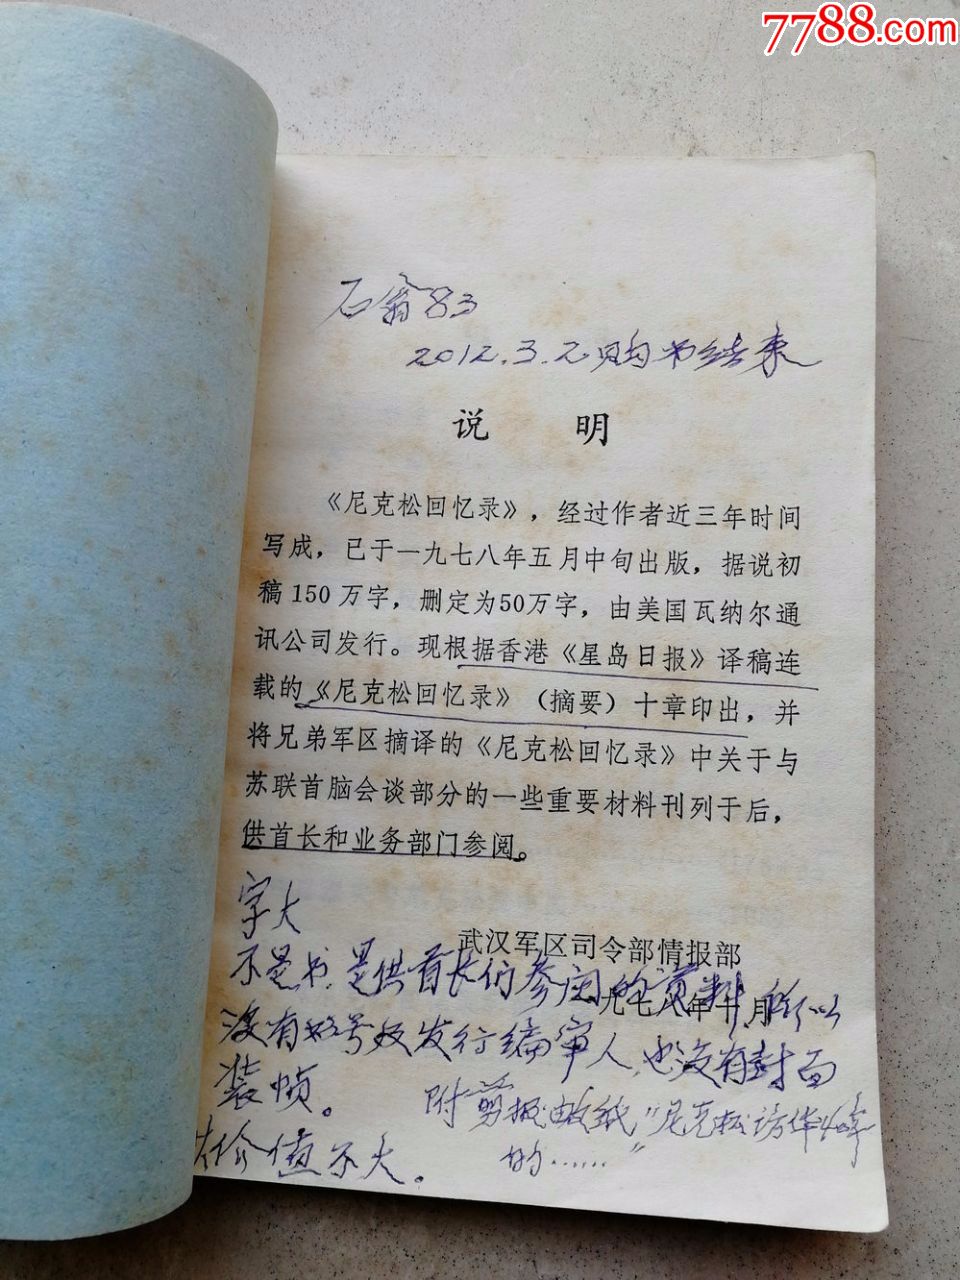 7788.com
石翁83
2012.3.2购书结束
说 明
《尼克松回忆录》，经过作者近三年时间
写成，已于一九七八年五月中旬出版，据说初
稿150万字，删定为50万字，由美国瓦纳尔通
讯公司发行。现根据香港《星岛日报》译稿连
载的《尼克松回忆录》（摘要）十章印出，并
将兄弟军区摘译的《尼克松回忆录》中关于与
苏联首脑会谈部分的一些重要材料刊列于后，
供首长和业务部门参阅。
字大
武汉军区司令部情报部
不是书，是供首长们参阅的资料，所以
九七八年十月
没有书号及发行编审人，也没有封面
装帧。
附剪报 纸"尼克松访华40年
价值不大。
的……"